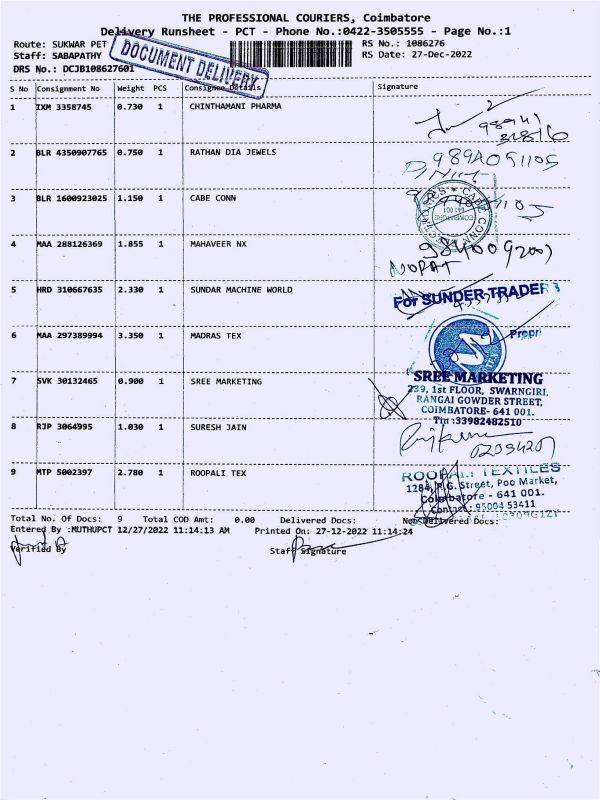 THE PROFESSIONAL COURIERS, Coimbatore
Delivery Runsheet - PCT - Phone No.:0422-3505555 - Page No.:1
Route: SUKWAR PET
RS No.: 1086276
Staff: SABAPATHY
RS Date: 27-Dec-2022
DRS No.: DCJB108627601
DOCUMENT DELIVERY
S No Consignment No Weight PCS Consignee Details Signature
1 IXM 3358745 0.730 1 CHINTHAMANI PHARMA
2 BLR 4350907765 0.750 1 RATHAN DIA JEWELS
3 BLR 1600923025 1.150 1 CABE CONN
CABE CONN
COIMBATORE
641 001
4 MAA 288126369 1.855 1 MAHAVEER NX
5 HRD 310667635 2.330 1 SUNDAR MACHINE WORLD
For SUNDER TRADER
Propri
6 MAA 297389994 3.350 1 MADRAS TEX
7 SVK 30132465 0.900 1 SREE MARKETING
SREE MARKETING
239, 1st FLOOR, SWARNGIRI,
RANGAI GOWDER STREET,
COIMBATORE- 641 001.
Tin :33982482510
8 RJP 3064995 1.030 1 SURESH JAIN
9 MTP 5002397 2.780 1 ROOPALI TEX
ROOPALI TEXTILES
1284, R.G. Street, Poo Market,
Coimbatore - 641 001.
Contact : 95004 53411
Total No. Of Docs: 9 Total COD Amt: 0.00 Delivered Docs: Non Delivered Docs:
Entered By :MUTHUPCT 12/27/2022 11:14:13 AM Printed On: 27-12-2022 11:14:24
Verified By Staff Signature